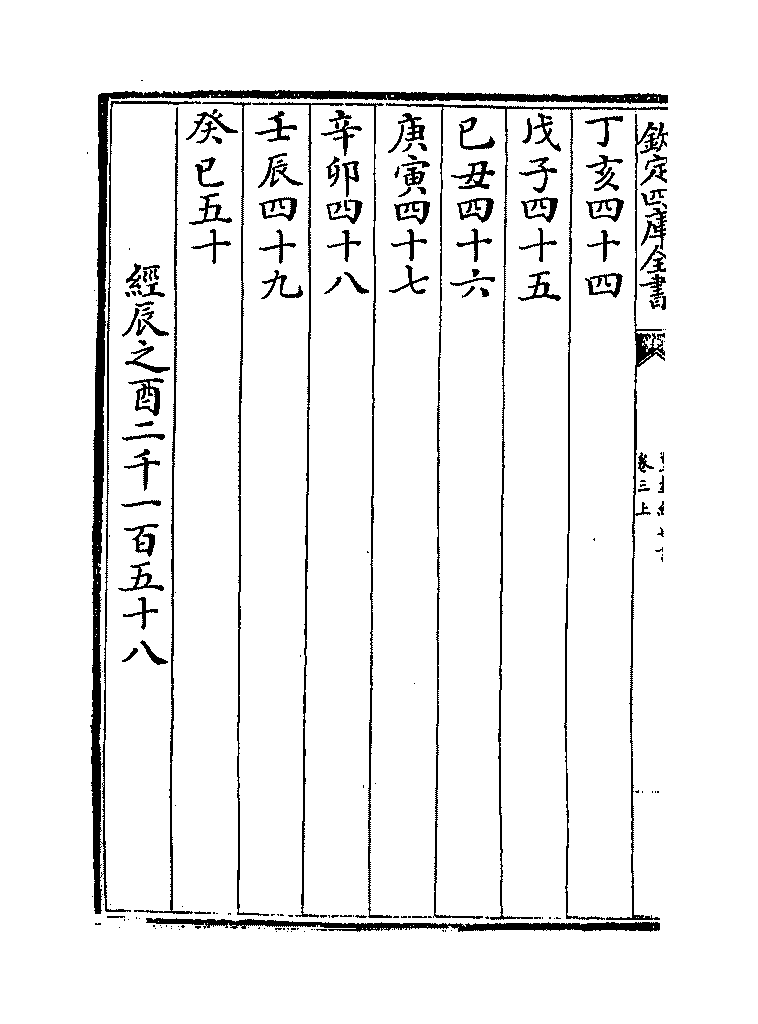 欽定四庫全書
卷三上
丁亥四十四
戊子四十五
己丑四十六
庚寅四十七
辛卯四十八
壬辰四十九
癸巳五十
經辰之酉二千一百五十八